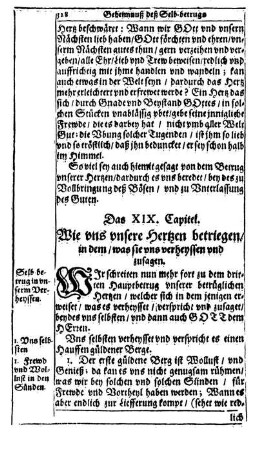 318 Geheimnuß deß Selb-betrugs
Hertz beschwäret: Wann wir GOtt vnd vnsern
Nächsten lieb haben/ GOtt förchten vnd ehren/ vn-
sern Nächsten gutes thun/ gern verzeihen vnd ver-
geben/ alle Ehr/ Lieb vnd Trew beweisen/ redlich vnd
auffrichtig mit ihme handlen vnd wandeln; kan
auch etwas in der Welt seyn/ dardurch das Hertz
mehr erleichtert vnd erfrewet werde? Ein Hertz das
sich/ durch Gnade vnd Beystand GOttes/ in sol-
chen Stücken vnablässig vbet/ gebe seine jnnigliche
Frewde/ die es darbey hat/ nicht vmb aller Welt
Gut: Die Vbung solcher Tugenden/ ist ihm so lieb
vnd so tröstlich/ daß ihn beduncket/ er sey schon halb
im Himmel.
So viel sey auch hiemit gesagt von dem Betrug
vnserer Hertzen/ dardurch es vns beredet/ bey des zu
Vollbringung deß Bösen/ vnd zu Vnterlassung
des Guten.
Das XIX. Capitel.
Wie vns vnsere Hertzen betriegen/
in dem/ was sie vns verheyssen vnd
zusagen.
Selb-be-
trug in vn-
serm Ver-
heyssen.
WIr schreiten nun mehr fort zu dem drit-
ten Hauptbetrug vnserer betrüglichen
Hertzen/ welcher sich in dem jenigen er-
weiset/ was es verheysset/ verspricht vnd zusaget/
beydes vns selbsten/ vnd dann auch GOTT dem
HErren.
1. Vns selb-
sten
Vns selbsten verheysset vnd verspricht es einen
Hauffen güldener Berge.
1. Frewd
vnd Wol-
lust in den
Sünden.
1. Der erste güldene Berg ist Wollust/ vnd
Genieß: da kan es vns nicht genugsam rühmen/
was wir bey solchen vnd solchen Sünden/ für
Frewde vnd Vortheyl haben werden; Wann es
aber endlich zur Liefferung kompt/ (sehet wie red-
lich